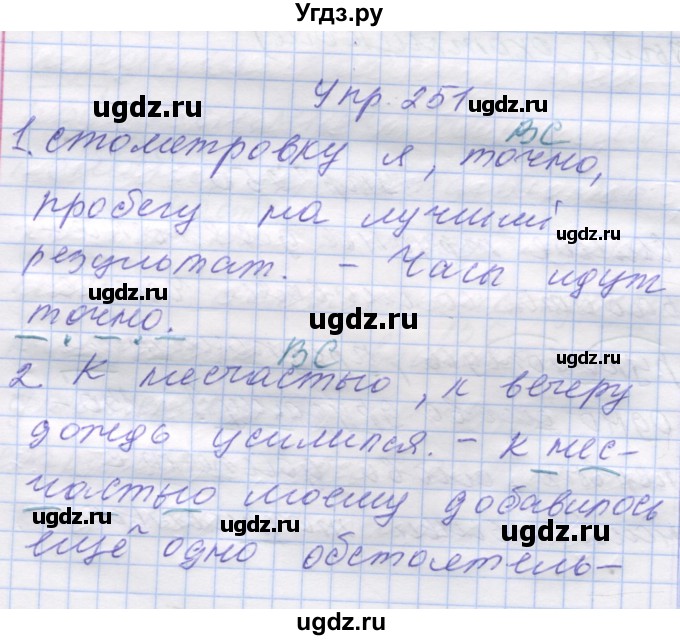 Угдз.ру
Упр. 251
ugdz.ru ugdz.ru
ВС
1. стометровку я, точно,
пробегу на лучший
ugdz.ru
результат. – Часы идут
ugdz.ru
точно. ugdz.ru
ВС
2. К несчастью, к вечеру
дождь усилился. – К нес-
частью моему добавилось
ugdz.ru ugdz.ru ugdz.ru
ещё одно обстоятель-
ugdz.ru